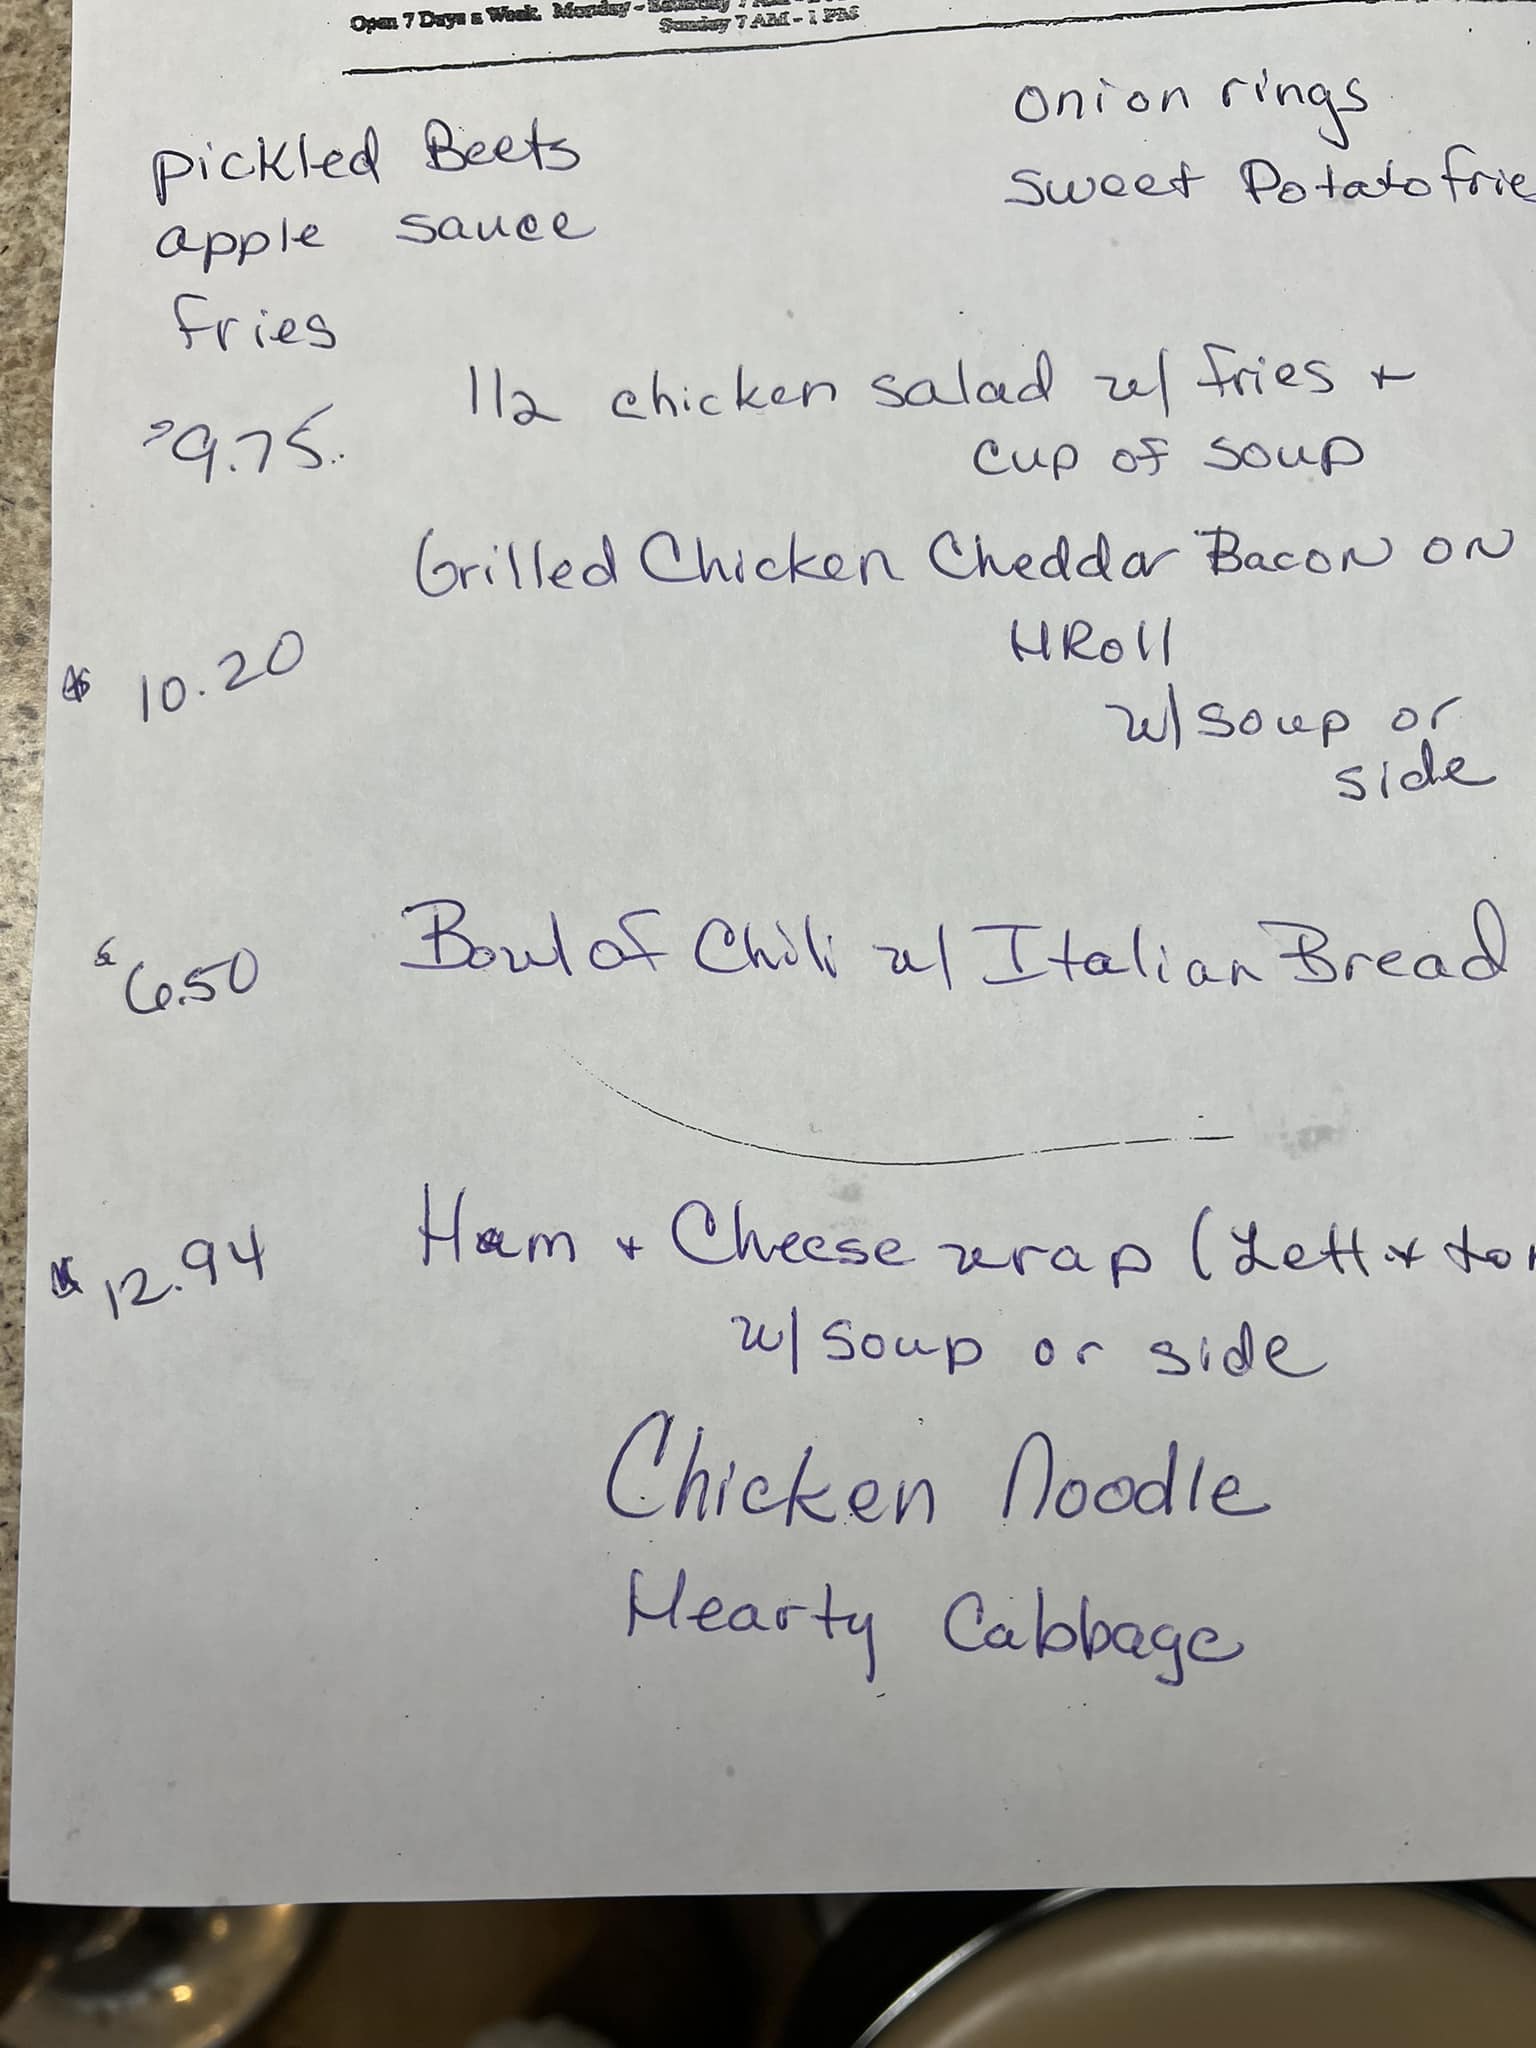 Open 7 Days a Week. Monday - Saturday 7 AM -
Sunday 7 AM - 1 PM
onion rings
pickled Beets
sweet Potato frie
apple sauce
fries
1/2 chicken salad w/ fries +
$9.75
cup of soup
Grilled Chicken Cheddar Bacon on
HRoll
$10.20
w/ soup or
side
Bowl of Chili w/ Italian Bread
$6.50
Ham + Cheese wrap (Lett + tom
$12.94
w/ soup or side
Chicken Noodle
Hearty Cabbage